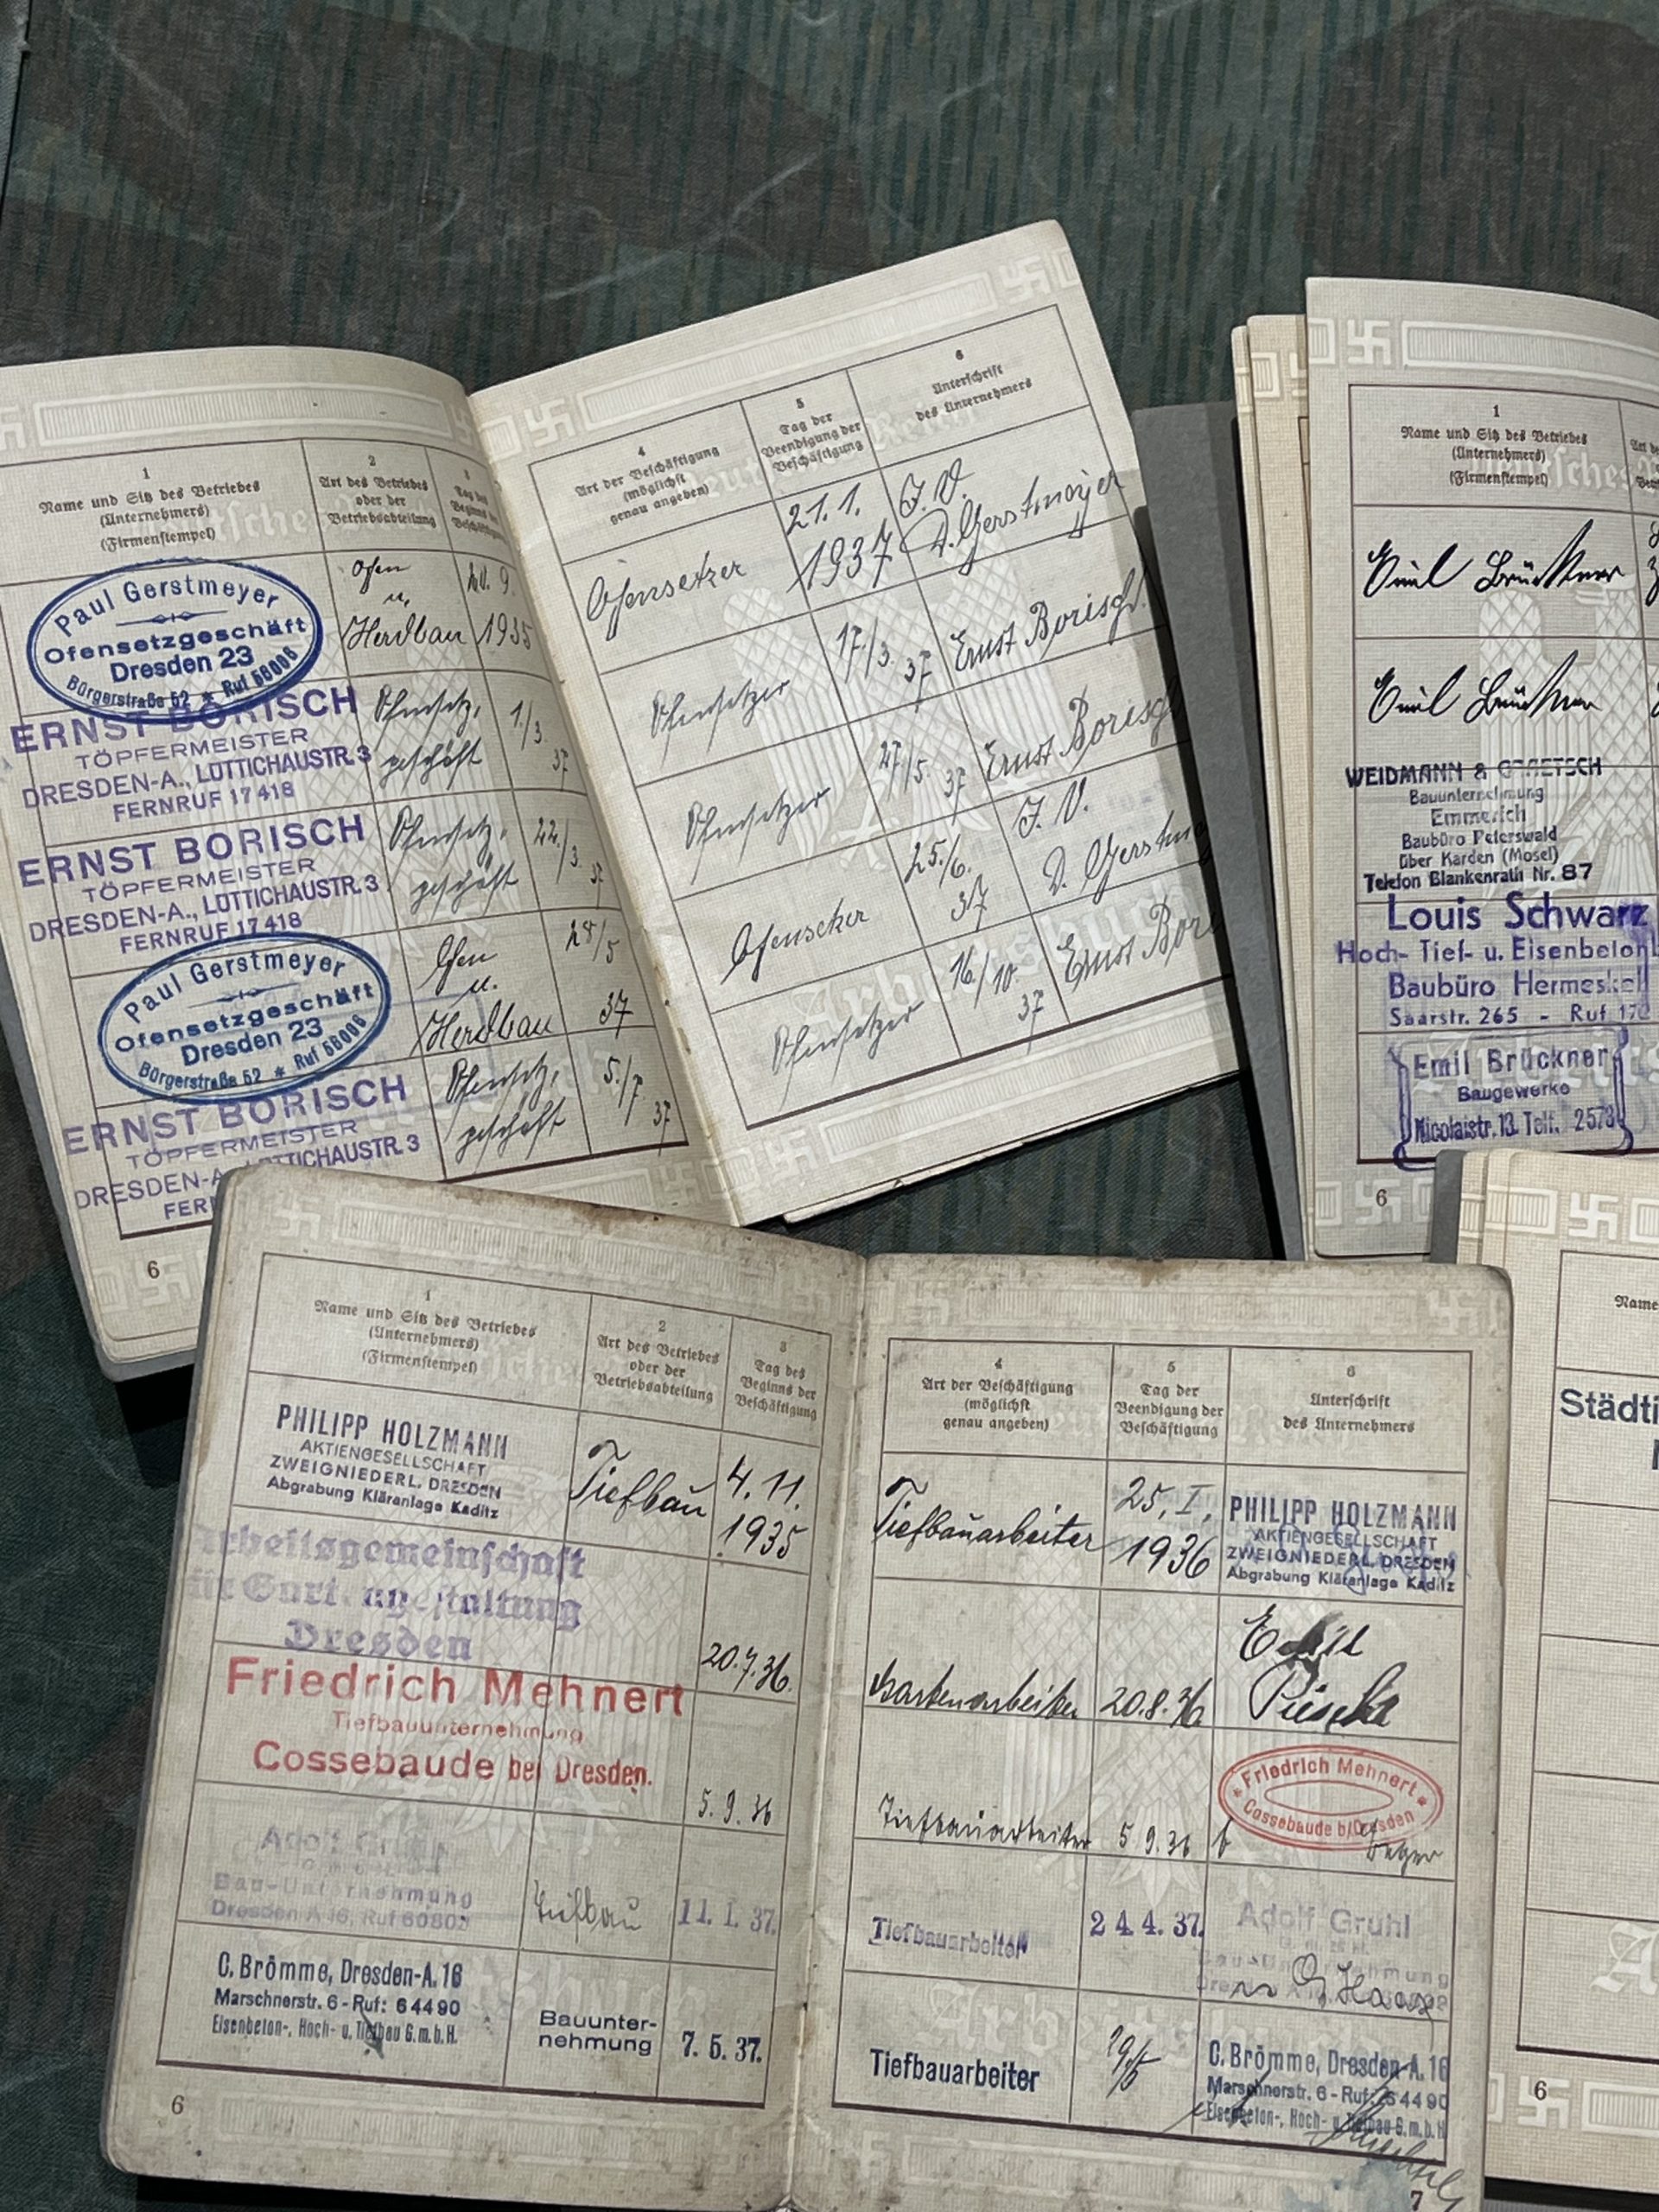 1
Name und Sitz des Betriebes
(Unternehmers)
(Firmenstempel)
2
Art des Betriebes
oder der
Betriebsabteilung
3
Tag des
Beginns der
Beschäftigung
Paul Gerstmeyer
Ofensetzgeschäft
Dresden 23
Bürgerstraße 52 * Ruf 56006
Ofen
u.
Herdbau
9.
1935
ERNST BORISCH
TÖPFERMEISTER
DRESDEN-A., LÜTTICHAUSTR. 3
FERNRUF 17418
Ofensetz.
geschäft
1./3.
37
ERNST BORISCH
TÖPFERMEISTER
DRESDEN-A., LÜTTICHAUSTR. 3
FERNRUF 17418
Ofensetz.
geschäft
22./3.
37
Paul Gerstmeyer
Ofensetzgeschäft
Dresden 23
Bürgerstraße 52 * Ruf 56006
Ofen
u.
Herdbau
28/5
37
ERNST BORISCH
TÖPFERMEISTER
DRESDEN-A., LÜTTICHAUSTR. 3
FER
Ofensetz.
geschäft
5./7
37
6
4
Art der Beschäftigung
(möglichst
genau angeben)
5
Tag der
Beendigung der
Beschäftigung
6
Unterschrift
des Unternehmers
Ofensetzer
21.1.
1937
I. V.
D. Gerstmeyer
Ofensetzer
17./3. 37
Ernst Borisch
Ofensetzer
27/5. 37
Ernst Borisch
Ofensetzer
25./6.
37
I. V.
D. Gerstm
Ofensetzer
16/10.
37
Ernst Bori
1
Name und Sitz des Betriebes
(Unternehmers)
(Firmenstempel)
Emil Brückner
Emil Brückner
WEIDMANN & GRAETSCH
Bauunternehmung
Emmerich
Baubüro Peterswald
über Karden (Mosel)
Telefon Blankenrath Nr. 87
Louis Schwarz
Hoch- Tief- u. Eisenbeton
Baubüro Hermeskeil
Saarstr. 265 - Ruf 170
Emil Brückner
Baugewerke
Nicolaistr. 13. Telf. 2573
6
1
Name und Sitz des Betriebes
(Unternehmers)
(Firmenstempel)
2
Art des Betriebes
oder der
Betriebsabteilung
3
Tag des
Beginns der
Beschäftigung
PHILIPP HOLZMANN
AKTIENGESELLSCHAFT
ZWEIGNIEDERL. DRESDEN
Abgrabung Kläranlage Kaditz
Tiefbau
4.11.
1935
Arbeitsgemeinschaft
Dresden
20.7.36.
Friedrich Mehnert
Tiefbauunternehmung
Cossebaude bei Dresden.
5.9.36
Adolf Gruhl
Bau-Unternehmung
Dresden A 16, Ruf 60802
Tiefbau
11. 1. 37.
C. Brömme, Dresden-A. 16
Marschnerstr. 6 - Ruf: 64490
Eisenbeton-, Hoch- u. Tiefbau G.m.b.H.
Bauunter-
nehmung
7. 5. 37.
6
4
Art der Beschäftigung
(möglichst
genau angeben)
5
Tag der
Beendigung der
Beschäftigung
6
Unterschrift
des Unternehmers
Tiefbauarbeiter
25. I.
1936
PHILIPP HOLZMANN
AKTIENGESELLSCHAFT
ZWEIGNIEDERL. DRESDEN
Abgrabung Kläranlage Kaditz
Gartenarbeiter
20.8.36
Tiefbauarbeiter
5.9.36
Friedrich Mehnert
Cossebaude b/Dresden
Tiefbauarbeiter
24. 4. 37.
Adolf Gruhl
G.m.b.H.
Bau-Unternehmung
Tiefbauarbeiter
19/5
C. Brömme, Dresden-A. 16
Marschnerstr. 6 - Ruf: 64490
Eisenbeton-, Hoch- u. Tiefbau G.m.b.H
7
Name
Städti
6